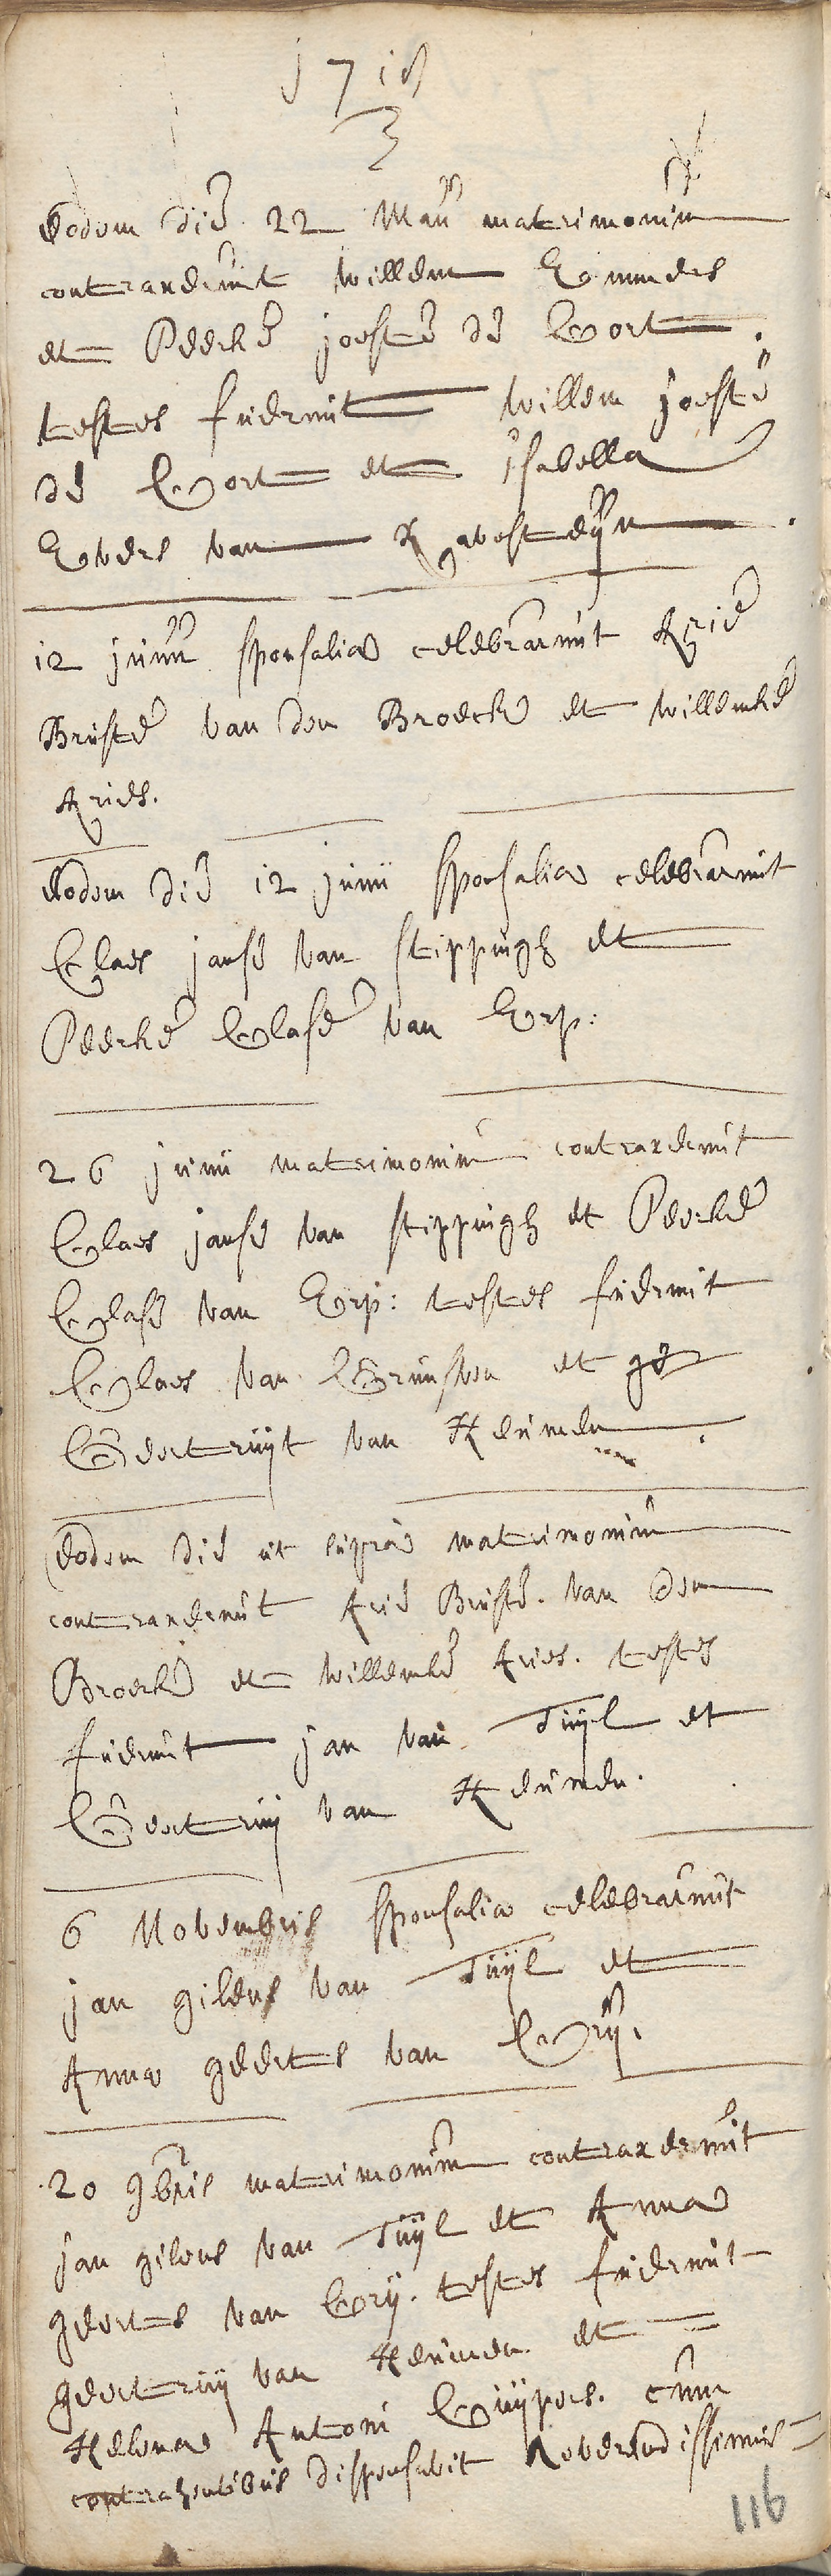 1718
Eodem die 22 Maii matrimonium
contraxerunt Willem Emmers
et Peerke Joeste de Cort.
testes fuerunt Willem Joeste
de Cort et Isabella
Evers van Ravesteijn.
12 junii sponsalia celebrarunt Arie
Bruste van den Broeck et Willemke
Aries.
Eodem die 12 junii sponsalia celebrarunt
Claes janse van stippingh et
Peerke Clase van Erp:
26 junii matrimonium contraxerunt
Claes janse van stippingh et Peerke
Clase van Erp: testes fuerunt
Claes van et ge
Geertruijt van Heumen.
Eodem die ut supra matrimonium
contraxerunt Arie Bruste. van den
Broeck et Willemke Aries. testes
fuerunt jan van Tuijl et
Geertruij van Heumen.
6 Novembris sponsalia celebrarunt
jan gilens van Tuijl et
Anna geerts van Erij.
20 9bris matrimonium contraxerunt
jan gilens van Tuijl et Anna
geerts van Erij. testes fuerunt
geertruij van Heumen. et
Helena Antoni Cuijpers. cum
contrahentibus dispensavit Reverendissimus
116